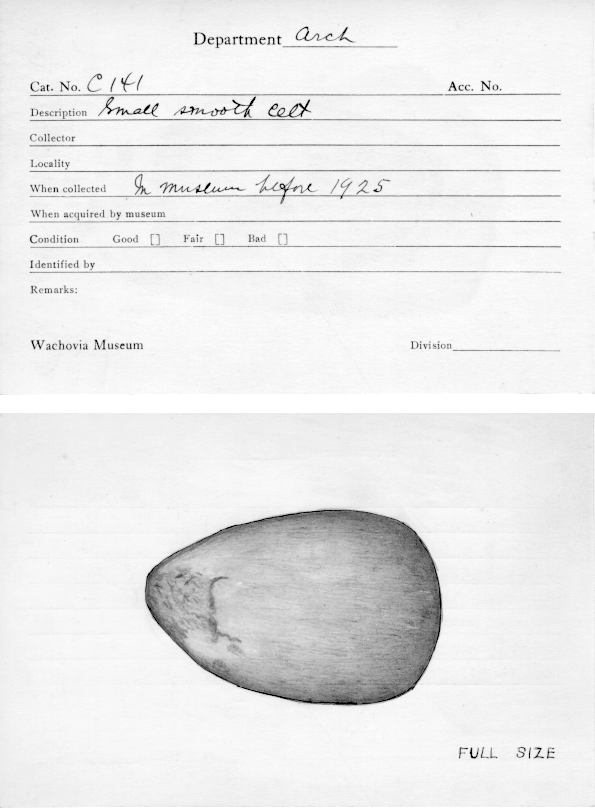 Department Arch
Cat. No. C 141 Acc. No.
Description Small smooth celt
Collector
Locality
When collected In museum before 1925
When acquired by museum
Condition Good [] Fair [] Bad []
Identified by
Remarks:
Wachovia Museum Division
FULL SIZE